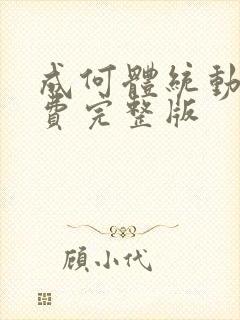 成何體統動
費完整版
顧小代